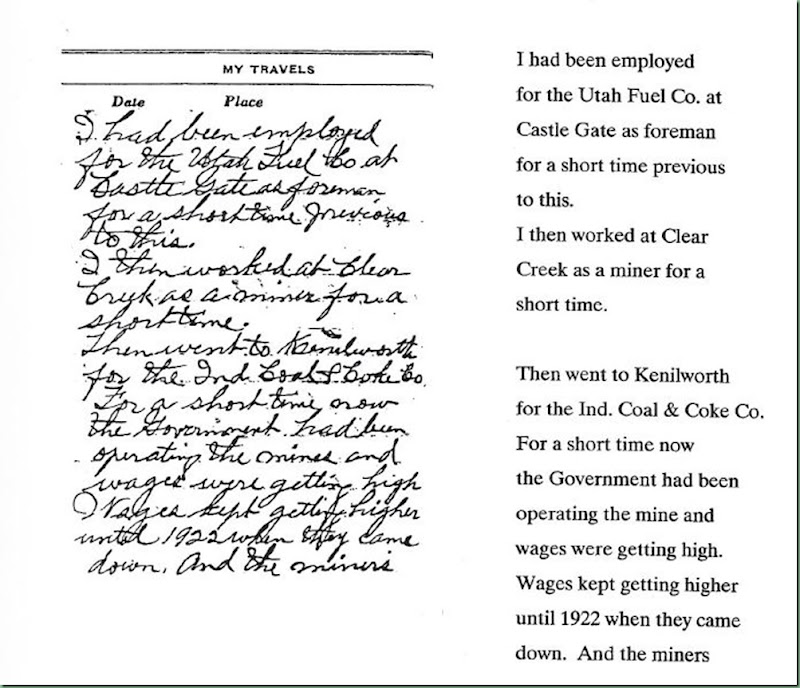 MY TRAVELS
Date Place
I had been employed
for the Utah Fuel Co at
Castle Gate as foreman
for a short time previous
to this.
I then worked at Clear
Cryk as a miner for a
short time.
Then went to Kenilworth
for the Ind Coal & Coke Co.
For a short time now
the Government had been
operating the mines and
wages were getting high
Wages kept getting higher
until 1922 when they came
down. And the miners
I had been employed
for the Utah Fuel Co. at
Castle Gate as foreman
for a short time previous
to this.
I then worked at Clear
Creek as a miner for a
short time.
Then went to Kenilworth
for the Ind. Coal & Coke Co.
For a short time now
the Government had been
operating the mine and
wages were getting high.
Wages kept getting higher
until 1922 when they came
down. And the miners